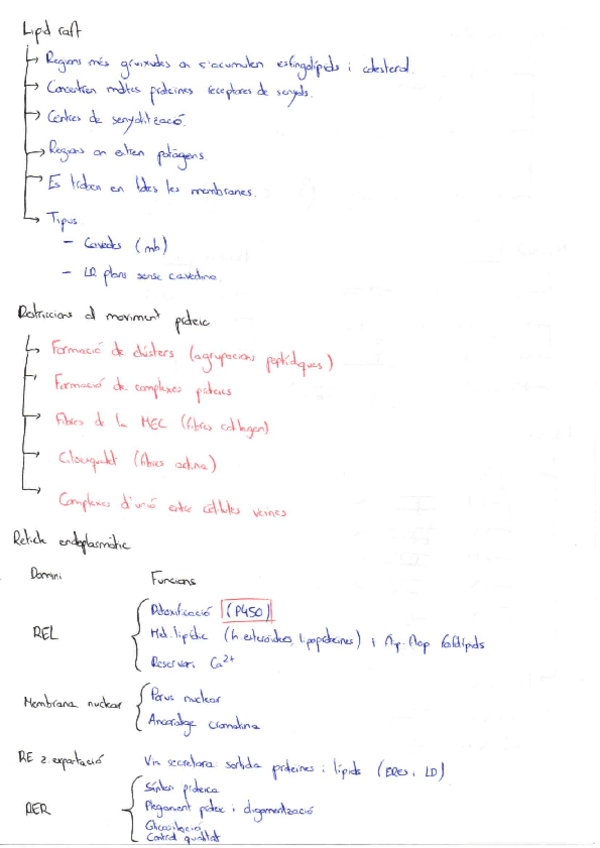 Lipid raft
Regions més gruixudes on s'acumulen esfingolípids i colesterol.
Concentren moltes proteïnes receptores de senyals.
Centres de senyalització.
Regions on entren patògens
Es troben en totes les membranes.
Tipus
- Caveoles (mb)
- LR plans sense caveolina.
Restriccions al moviment proteic
Formació de clústers (agrupacions peptídiques)
Formació de complexes proteics
Fibres de la MEC (fibres col·lagen)
Citoesquelet (fibres actina)
Complexes d'unió entre cèl·lules veïnes
Reticle endoplasmàtic
Domini Funcions
REL
Detoxificació (P450)
Met. lipídic (h. esteroidees, lipoproteïnes) i flip-flop fosfolípids
Reservori Ca2+
Membrana nuclear
Porus nuclear
Ancoratge cromatina
RE z. exportació Via secretora sortida proteïnes i lípids (ERes i LD)
RER
Síntesi proteica
Plegament proteic i oligomerització
Glicosilació
Control qualitat